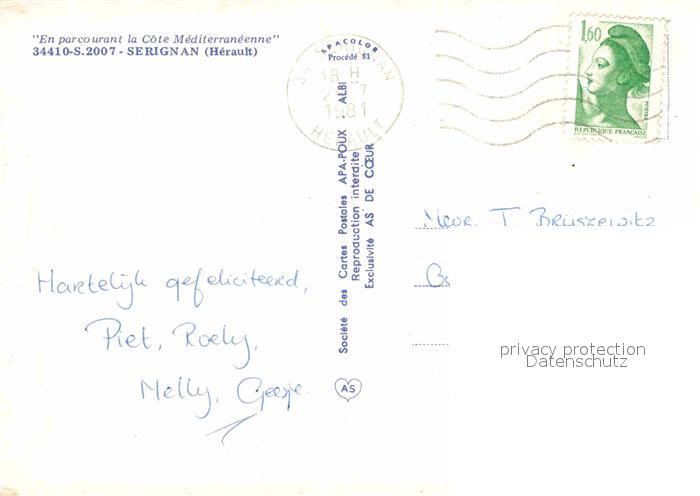 "En parcourant la Côte Méditerranéenne"
34410-S.2007 - SERIGNAN (Hérault)
APACOLOR
Procédé 81
18 H
1981
HERAULT
1,60
POSTES
REPUBLIQUE FRANÇAISE
Société des Cartes Postales APA-POUX ALBI
Reproduction interdite
Exclusivité AS DE CŒUR
AS
Mevr. T Bruszewitz
Hartelijk gefeliciteerd,
Piet, Roely,
Nelly, Geesje
privacy protection
Datenschutz